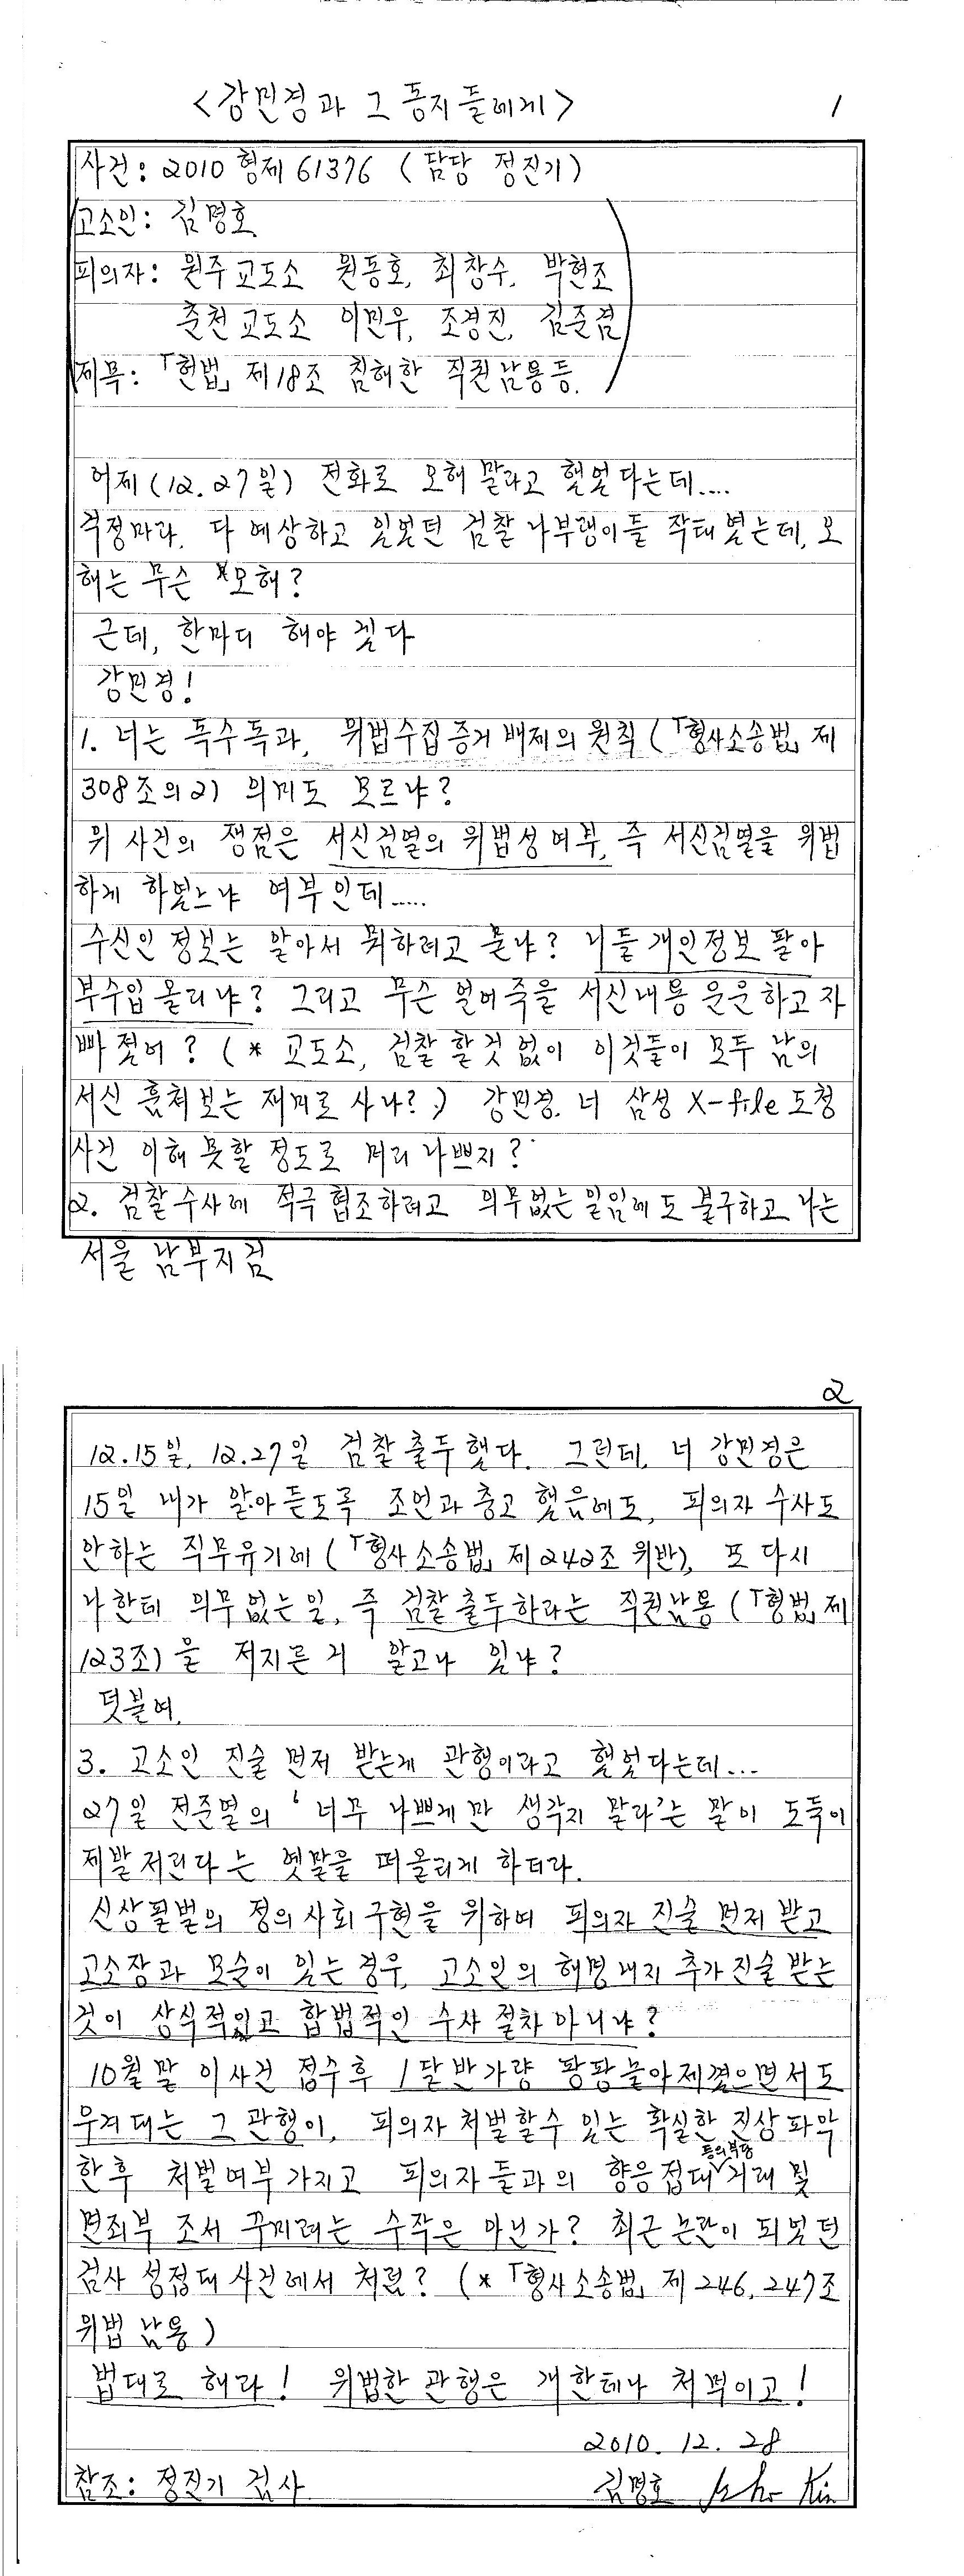 <강민경과 그 동지들에게>
1
사건: 2010 형제 61376 (담당 정진기)
고소인: 김명호
피의자: 원주교도소 원동호, 최창수, 박현조
춘천교도소 이민우, 조경진, 김준겸
제목: 「헌법」 제18조 침해한 직권남용등.
어제(12.27일) 전화로 오해 말라고 했었다는데....
걱정마라. 다 예상하고 있었던 검찰 나부랭이들 작태였는데, 오
해는 무슨 오해?
근데, 한마디 해야 겠다
강민경!
1. 너는 독수독과, 위법수집증거 배제의 원칙(「형사소송법」 제
308조의2) 의미도 모르냐?
위 사건의 쟁점은 서신검열의 위법성여부, 즉 서신검열을 위법
하게 하였느냐 여부인데.....
수신인 정보는 알아서 뭐하려고 묻냐? 니들 개인정보 팔아
부수입 올리냐? 그리고 무슨 얼어죽을 서신내용 운운하고 자
빠졌어? (* 교도소, 검찰 할것 없이 이것들이 모두 남의
서신 훔쳐보는 재미로 사나?) 강민경. 너 삼성 X-file 도청
사건 이해 못할 정도로 머리 나쁘지?
2. 검찰수사에 적극 협조하려고 의무없는 일임에도 불구하고 나는
서울 남부지검
2
12.15일, 12.27일 검찰출두했다. 그런데, 너 강민경은
15일 내가 알아듣도록 조언과 충고 했음에도, 피의자 수사도
안하는 직무유기에(「형사소송법」 제242조 위반), 또 다시
나한테 의무없는 일, 즉 검찰출두하라는 직권남용(「형법」 제
123조)을 저지른 거 알고나 있냐?
덧붙여,
3. 고소인 진술 먼저 받는게 관행이라고 했었다는데...
27일 전준열의 '너무 나쁘게만 생각지 말라'는 말이 도둑이
제발저린다는 옛말을 떠올리게 하더라.
신상필벌의 정의사회구현을 위하여 피의자 진술 먼저 받고
고소장과 모순이 있는 경우, 고소인의 해명 내지 추가진술 받는
것이 상식적이고 합법적인 수사 절차아니냐?
10월말 이사건 접수후 1달반가량 팡팡놀아제꼈으면서도
우겨대는 그 관행이, 피의자 처벌할수 있는 확실한 진상파악
한후 처벌여부가지고 피의자들과의 향응접대 등의부당 거래 및
면죄부 조서 꾸미려는 수작은 아닌가? 최근 논란이 되었던
검사 성접대 사건에서 처럼? (* 「형사소송법」 제246, 247조
위법 남용)
법대로 해라! 위법한 관행은 개한테나 쳐먹이고!
2010. 12. 28
참조: 정진기 검사
김명호